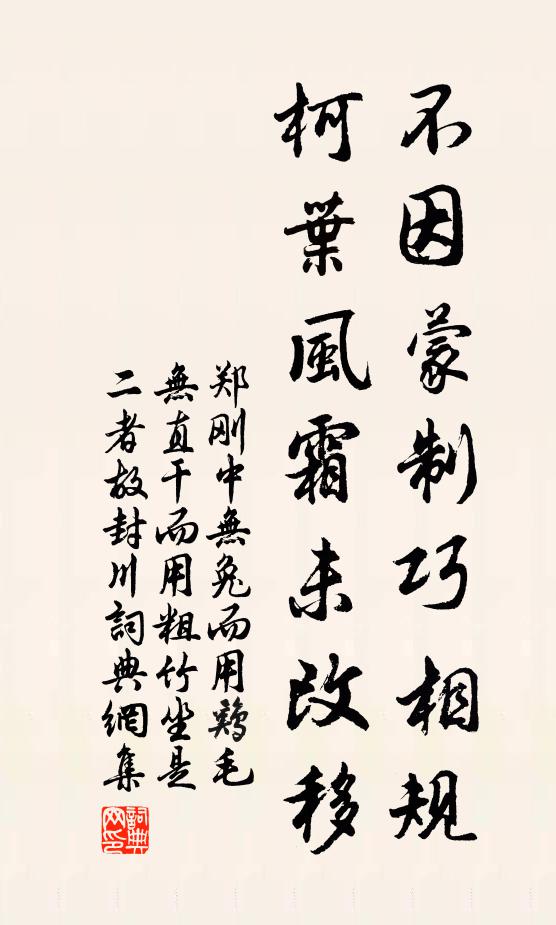 不因蒙制巧相規
柯葉風霜未改移
郑刚中無兔而用鷄毛
無直干而用粗竹坐是
二者故封川詞典網集
詞典网印